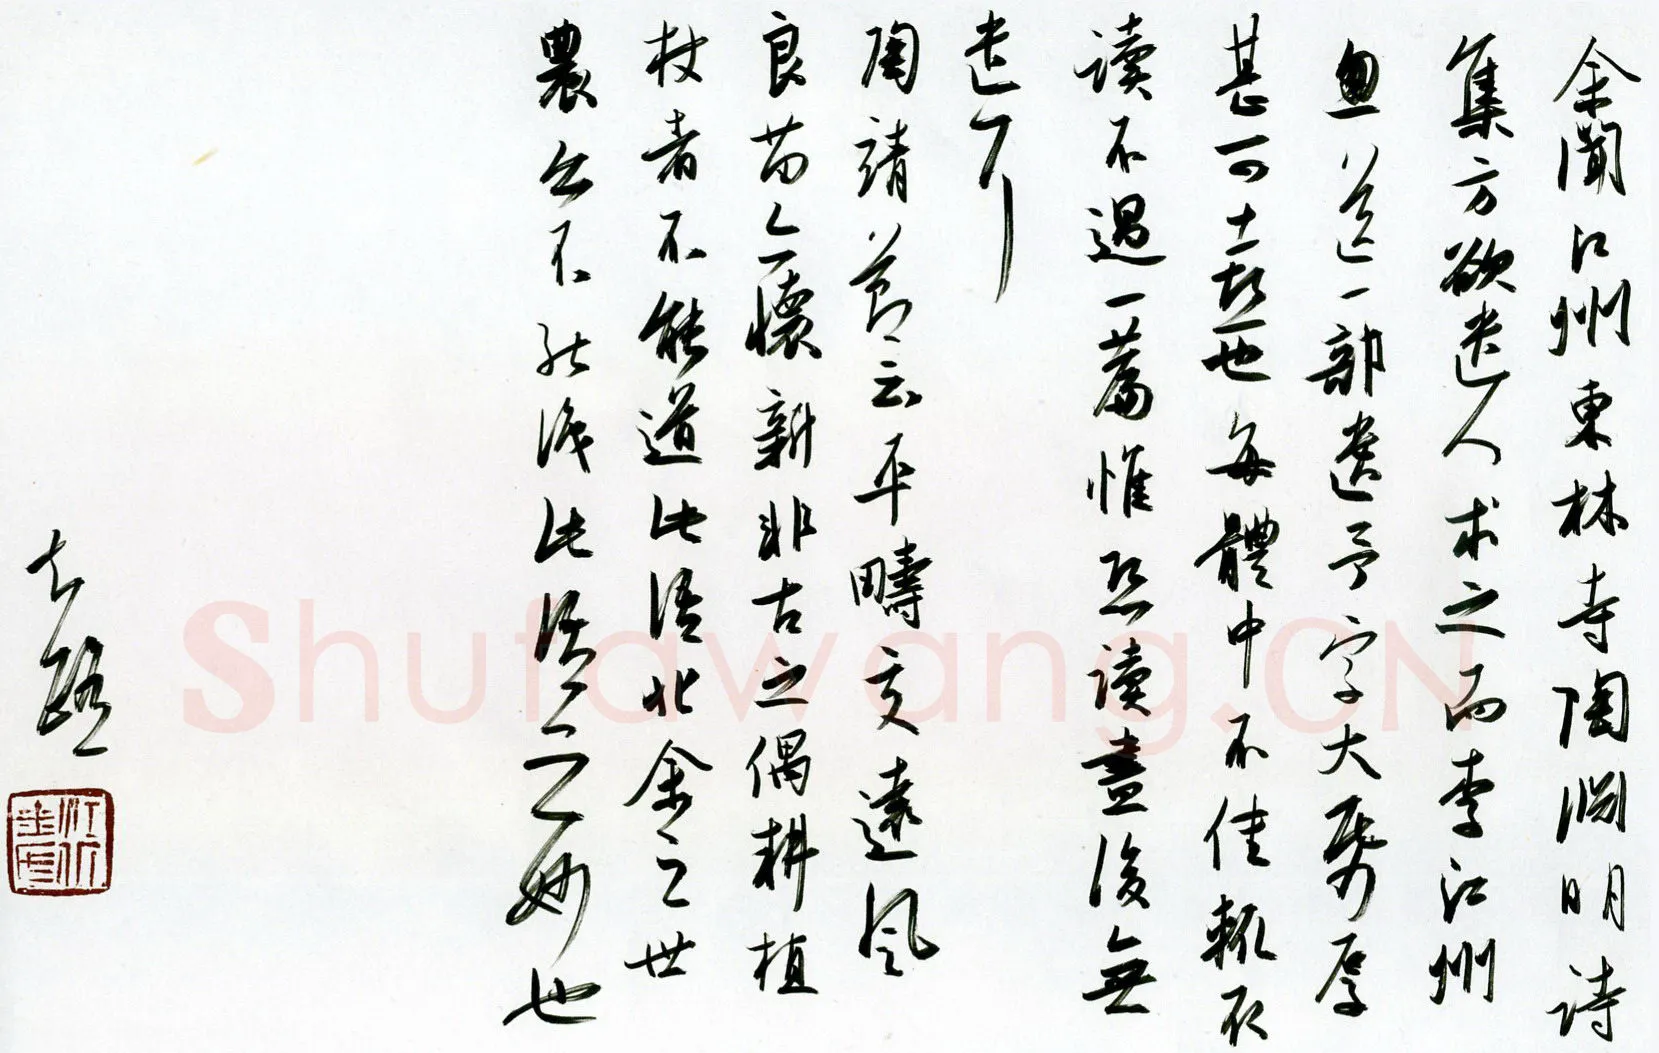 余聞江州東林寺陶渊明詩
集方欲遣人求之而李江州
忽送一部遺予字大帋厚
甚可喜也每體中不佳輒取
读不過一篇惟恐读盡後無
遣耳
陶靖节云平疇交遠風
良苗亦懷新非古之偶耕植
杖者不能道此語非余之世
農亦不能識此語之妙也
Shufawang.CN